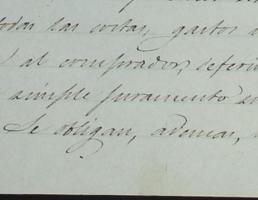 todas las costas, gastos
al comprador, referi
simple juramento
Se obligan, ademas,